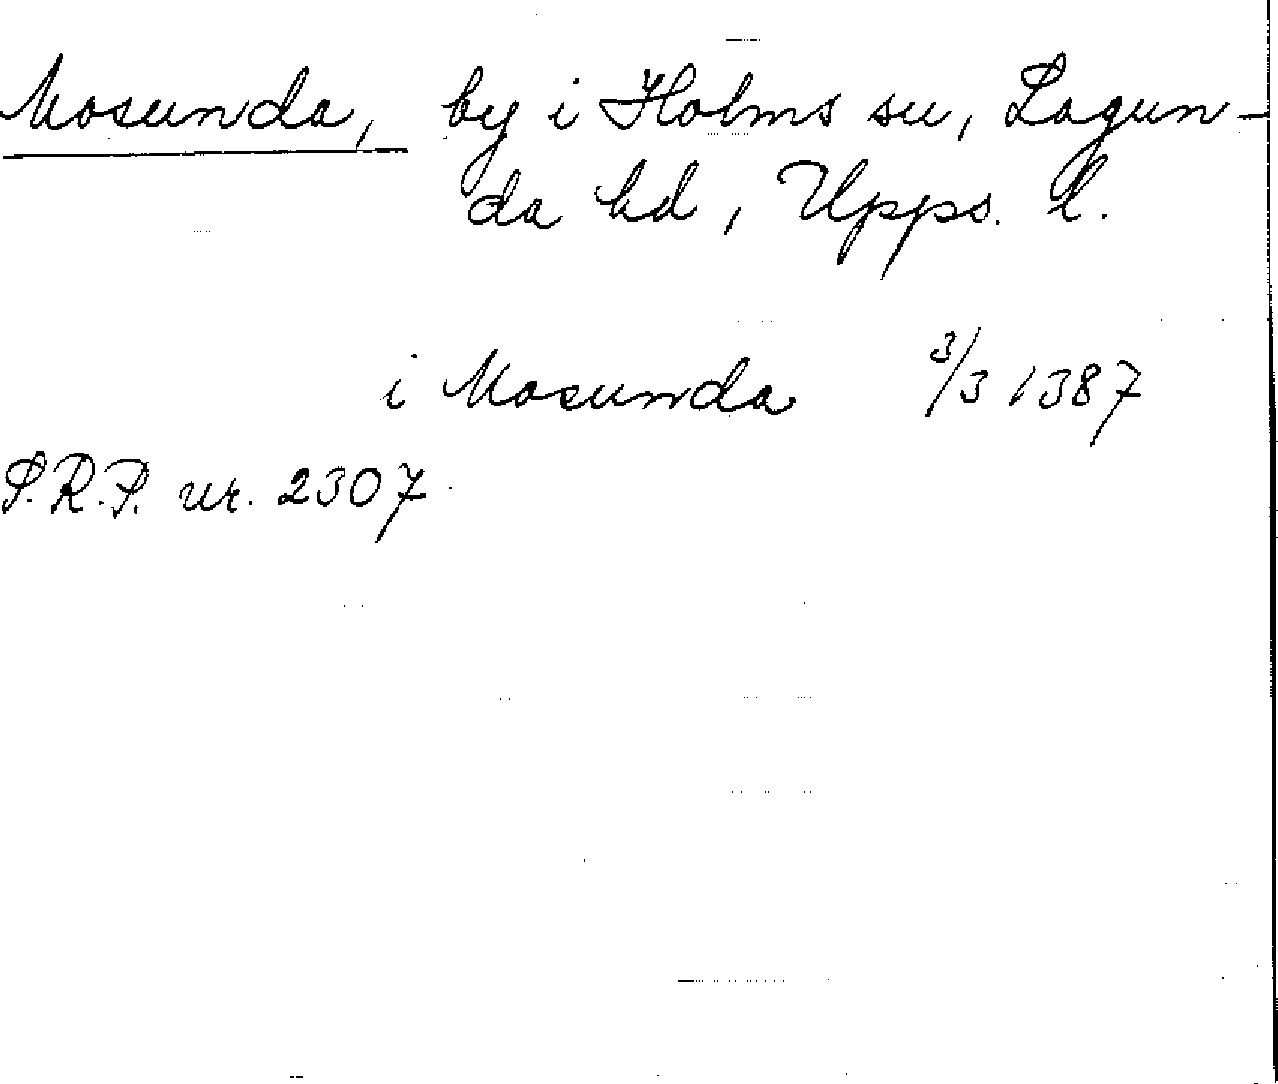 Mosunda, by i Holms sn, Lagun-
da hd, Upps. l.
i Mosunda 3/3 1387
S.R.P. nr. 2307